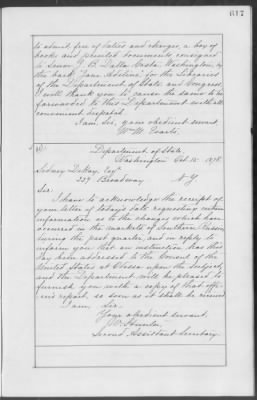 617
to admit, free of duties and charges, a box of
books and printed documents consigned
to Senor J. B. Dalla Costa, Washington, by
the bark "Jane Adelina" for the Libraries
of the Department of State, and Congress,
I will thank you to cause the same to be
forwarded to this Department with all
convenient despatch.
I am, Sir, your obedient servant,
Wm. M. Evarts.
Department of State,
Washington Oct. 15 1878.
Sidney DeKay, Esqr.
239 Broadway N-Y
Sir:
I have to acknowledge the receipt of
your letter of today's date requesting certain
information as to the changes which have
occurred in the markets of Southern Russia
during the past quarter, and in reply to
inform you that an instruction has this
day been addressed to the Consul of the
United States at Odessa upon the subject,
and the Department will be pleased to
furnish you with a copy of that offi-
cer's report, so soon as it shall be received
I am, Sir,
Your obedient servant,
Hunter
Second Assistant Secretary.